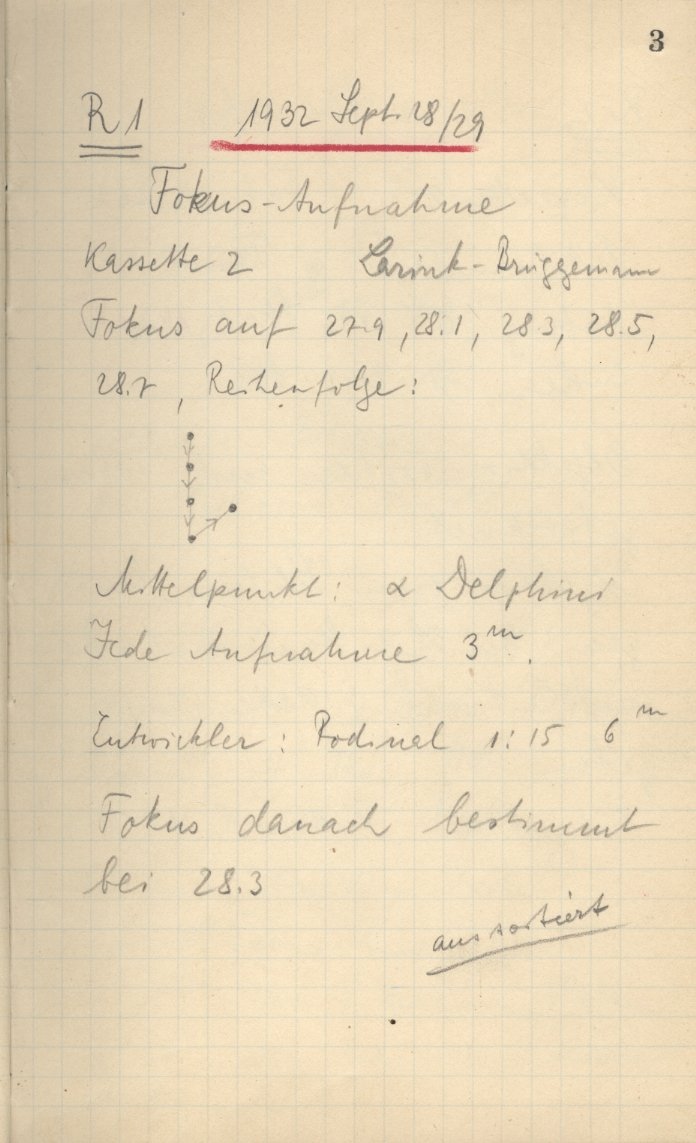 3
R 1 1932 Sept. 28/29
Fokus-Aufnahme
Kassette 2 Larink-Brüggemann
Fokus auf 27.9, 28.1, 28.3, 28.5,
28.7, Reihenfolge:
Mittelpunkt: α Delphini
Jede Aufnahme 3ᵐ.
Entwickler: Rodinal 1:15 6ᵐ
Fokus danach bestimmt
bei 28.3
aussortiert